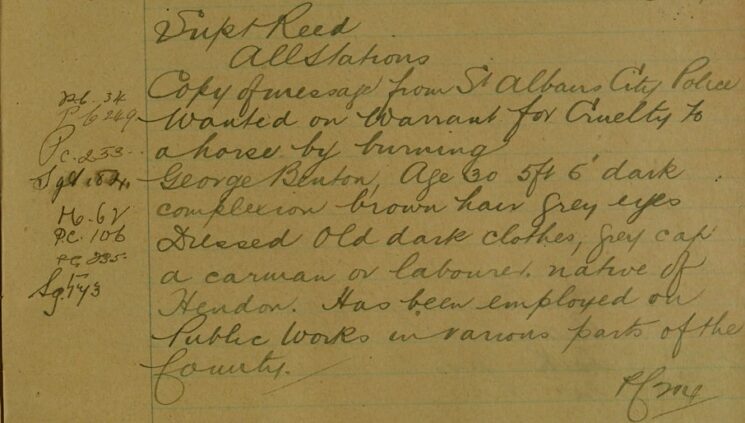 Supt Reed
All Stations
Copy of message from St Albans City Police
Wanted on Warrant for Cruelty to
a horse by burning
George Benton, Age 30 5ft 6" dark
complexion brown hair grey eyes
Dressed Old dark clothes, grey cap
a carman or labourer. native of
Hendon. Has been employed on
Public Works in various parts of the
County.
P.C. 34
P.C. 249
P.C. 233
Sgt
62
P.C. 106
P.C. 235
Sgt